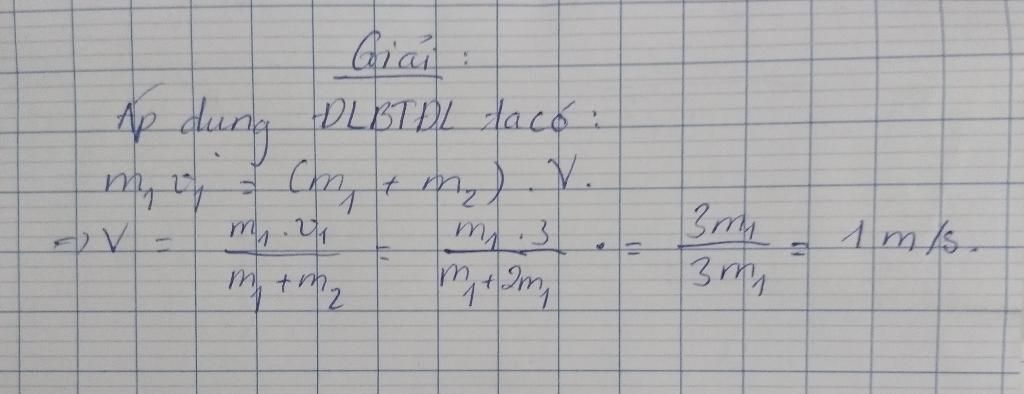 Giải :
Áp dụng DLBTDL ta có :
m₁ v₁ = (m₁ + m₂) . V.
=> V = \frac{m₁ . v₁}{m₁ + m₂} = \frac{m₁ . 3}{m₁ + 2m₁} . = \frac{3m₁}{3m₁} = 1 m/s.